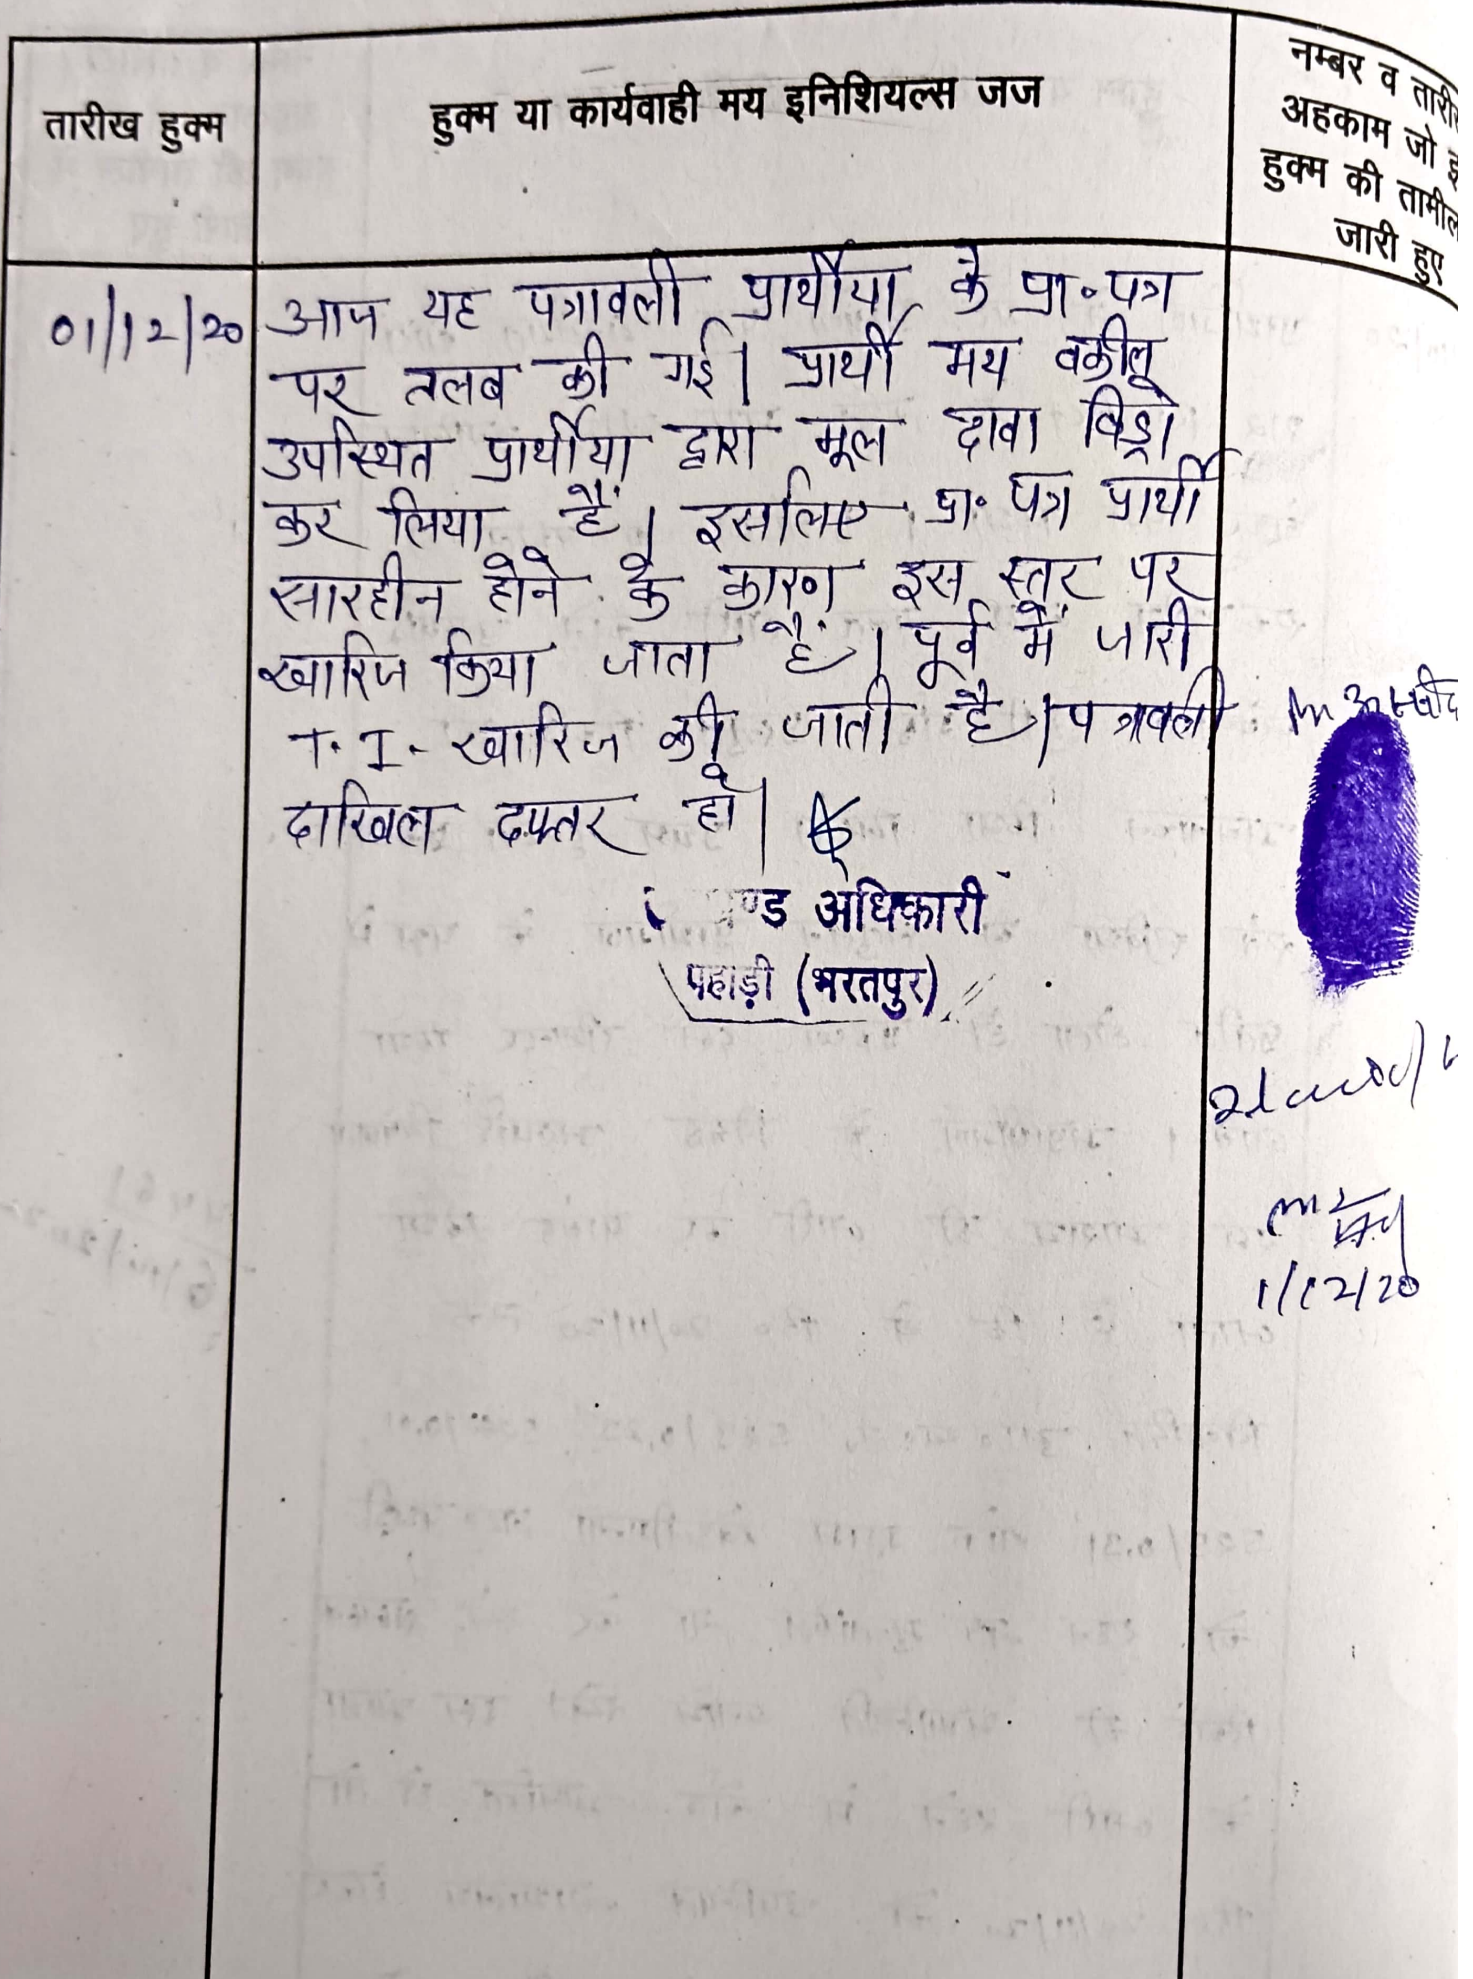 तारीख हुक्म
हुक्म या कार्यवाही मय इनिशियल्स जज
नम्बर व तारीख
अहकाम जो इ
हुक्म की तामील
जारी हुए
01/12/20
आज यह पत्रावली प्रार्थीया के प्रा॰पत्र
पर तलब की गई। प्रार्थी मय वकील
उपस्थित प्रार्थीया द्वारा मूल दावा विड्रो
कर लिया हैं। इसलिए प्रा॰ पत्र प्रार्थी
सारहीन होने के कारण इस स्तर पर
खारिज किया जाता हैं। पूर्व में जारी
T.I- खारिज की जाती है। पत्रावली
दाखिल दफ्तर हो।
ण्ड अधिकारी
पहाड़ी (भरतपुर)
1/12/20